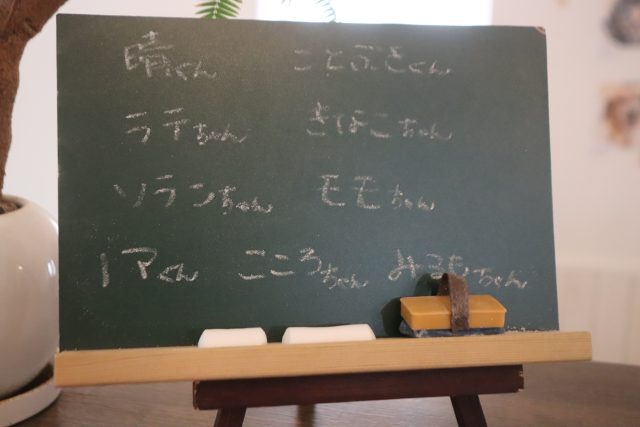 晴くん ことぶきくん
ラテちゃん きなこちゃん
ソランちゃん モモちゃん
ノアくん こころちゃん